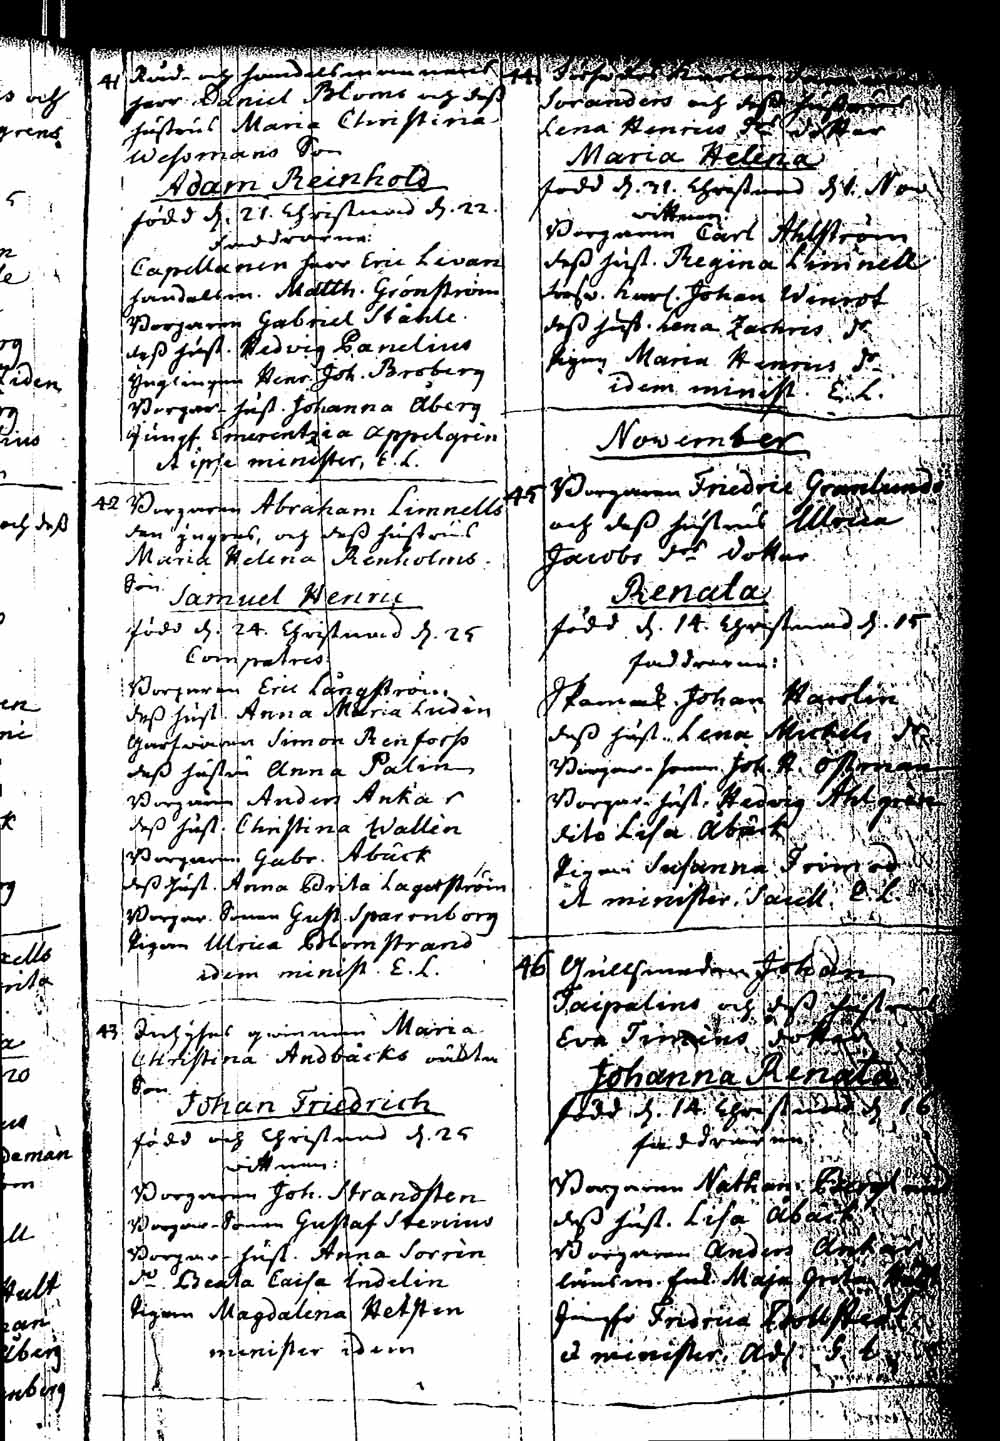 41 Råd- och handelsmannens
herr Daniel Bloms och deß
hustrus Maria Christina
Weßmans Son
Adam Reinhold
född d. 21. Christnad d. 22.
faddrarne:
Capellanen herr Eric Levan
handelsm. Matth. Grönström
Borgaren Gabriel Ståhle.
deß hust. Hedvig Panelius
Ynglingen Henr. Joh. Broberg
Borgar- hust. Johanna Åberg
Jungf. Emerentzia Appelgrén
et ipse minister, E. L.
42 Borgaren Abraham Limnells
den yngres, och deß hustrus
Maria Helena Renholms.
Son
Samuel Henric
född d. 24. Christnad d. 25
Compatres:
Borgaren Eric Långström
deß hust. Anna Maria Ludén
Simon Renforss
deß hustru Anna Palin
Borgaren Anders Ankar
deß hust. Christina Wallén
Borgaren Gabr. Åbäck
deß hust. Anna Brita Lagerström
Borgar-Sonen Gust. Sparenborg
Pigan Ulrica Blomstrand
idem minist. E. L.
43 Inhyses qvinnan Maria
Christina Andbäcks oäkta
Son
Johan Friedrich
född och Christnad d. 25
wittnen:
Borgaren Joh. Strandsten
Borgar-Sonen Gustaf Stenius
Borgar- hust. Anna Sorrén
do Beata Caisa Indelin
Pigan Magdalena Hetsten
minister idem
44
Soranders och deß hustrus
Lena Henrics drs dotter
Maria Helena
född d. 31. Christnad d. 1. Nov
wittnen:
Borgaren Carl Ahlström
deß hust. Regina Limnell
Johan Winrot
deß hust. Lena Zachris dr.
Pigan Maria Henrics dr
idem minist. E. L.
November
45 Borgaren Friedric Granlunds
och deß hustrus Ulrica
Jacobs drs dotter
Renata
född d. 14. Christnad d. 15
faddrarne:
Johan Harlin
deß hust. Lena Michels dr.
Borgar-sonen Joh. H. Österman
Borgar-hust. Hedvig Ahlgrén
dito Lisa Åbäck
Pigan Susanna
et minister, E. L.
46 Gullsmeden Johan
Taipalius och deß hustrus
Eva dotter
Johanna Renata
född d. 14. Christnad d. 16
faddrarne:
Borgaren Nathan.
deß hust. Lisa Åbäck
Borgaren Anders Ankar
Maja Greta
Jungfr Fridrica
et minister,